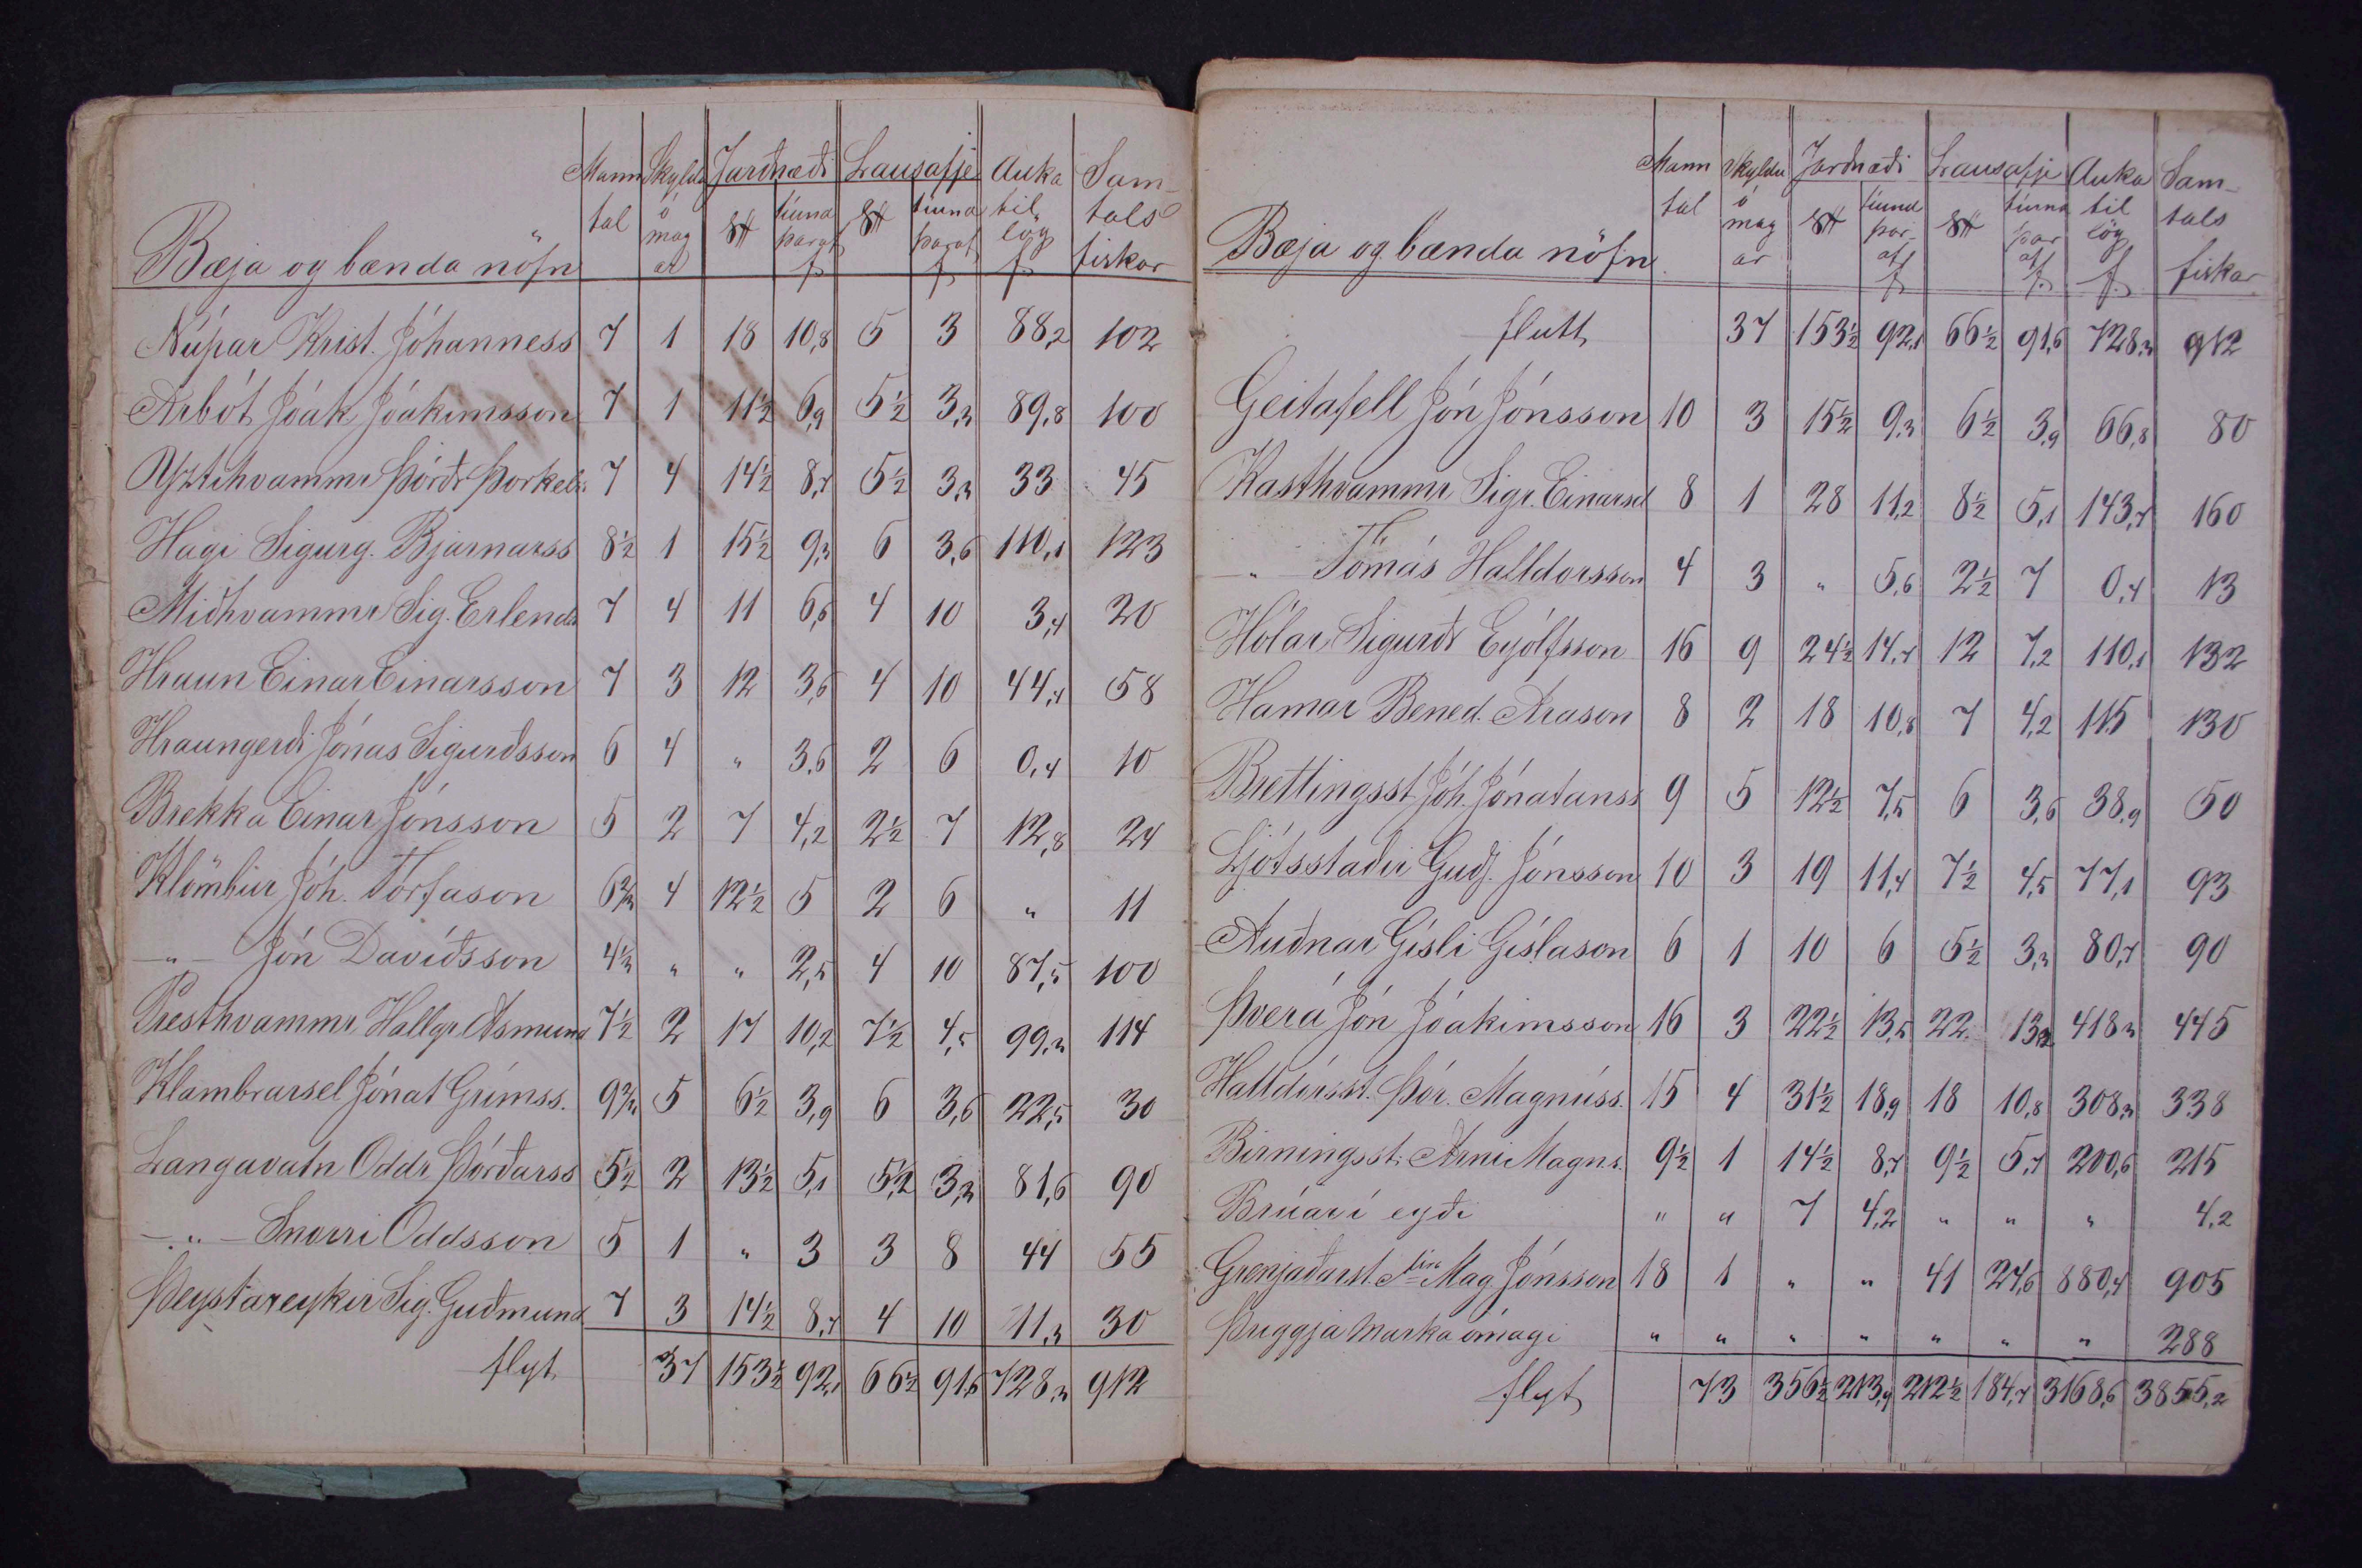 Mann Skyldu Jarðnæði Lausafje Auka Sam-
tal ó mag ar tíund þaraf f. tíund þaraf f. til lög f. tals fiskar
Bæja og bænda nöfn
Núpar Krist. Jóhanness 7 1 18 10,8 5 3 88,2 102
Arbót Jóak Jóakimsson 7 1 11½ 6,9 5½ 3,3 89,8 100
Yztihvammr Þórðr Þorkels. 7 4 14½ 8,7 5½ 3,3 33 45
Hagi Sigurg. Bjarnarss 8½ 1 15½ 9,3 6 3,6 110,1 123
Miðhvammr Sig. Erlends 7 4 11 6,6 4 10 3,4 20
Hraun Einar Einarsson 7 3 12 3,6 4 10 44,4 58
Hraungerði Jónas Sigurðsson 6 4 „ 3,6 2 6 0,4 10
Brekka Einar Jónsson 5 2 7 4,2 2½ 7 12,8 24
Klömbur Jóh. Torfason 6⅔ 4 12½ 5 2 6 „ 11
-„- Jón Davíðsson 4⅓ „ „ 2,5 4 10 87,5 100
Presthvammr Hallgr Asmund 7½ 2 17 10,2 7½ 4,5 99,3 114
Klambrarsel Jónat Grímss. 9⅔ 5 6½ 3,9 6 3,6 22,5 30
Langavatn Oddr Þórðarss 5½ 2 13½ 5,1 5½ 3,3 81,6 90
-„- Snorri Oddsson 5 1 „ 3 3 8 44 55
Þeystareykir Sig. Guðmund 7 3 14½ 8,7 4 10 11,3 30
flyt 37 153½ 92,1 66½ 91,6 728,3 912
Mann Skyldu Jarðnæði Lausafje Auka Sam-
tal ó mag ar tíund þar af f. tíund þar af f. til lög f. tals fiskar
Bæja og bænda nöfn
flutt 37 153½ 92,1 66½ 91,6 728,3 912
Geitafell Jón Jónsson 10 3 15½ 9,3 6½ 3,9 66,8 80
Kasthvammr Sigr. Einarsd 8 1 28 11,2 8½ 5,1 143,7 160
-„- Tómás Halldorsson 4 3 „ 5,6 2½ 7 0,4 13
Hólar Sigurðr Eyólfsson 16 9 24½ 14,7 12 7,2 110,1 132
Hamar Bened. Arason 8 2 18 10,8 7 4,2 115 130
Brettingsst Jóh. Jónatanss 9 5 12½ 7,5 6 3,6 38,9 50
Ljótsstaðir Guðj. Jónsson 10 3 19 11,4 7½ 4,5 77,1 93
Auðnar Gísli Gíslason 6 1 10 6 5½ 3,3 80,7 90
Þverá Jón Jóakimsson 16 3 22½ 13,5 22 13,2 418,3 445
Halldórsst. Þór. Magnúss. 15 4 31½ 18,9 18 10,8 308,3 338
Birningsst. Arni Magns. 9½ 1 14½ 8,7 9½ 5,7 200,6 215
Brúar í eyði „ „ 7 4,2 „ „ „ 4,2
Grenjaðarst. Mag Jónsson 18 1 „ „ 41 24,6 880,4 905
Þriggja marka ómagi „ „ „ „ „ „ „ 288
flyt 73 356½ 213,9 212½ 184,7 3168,6 3855,2